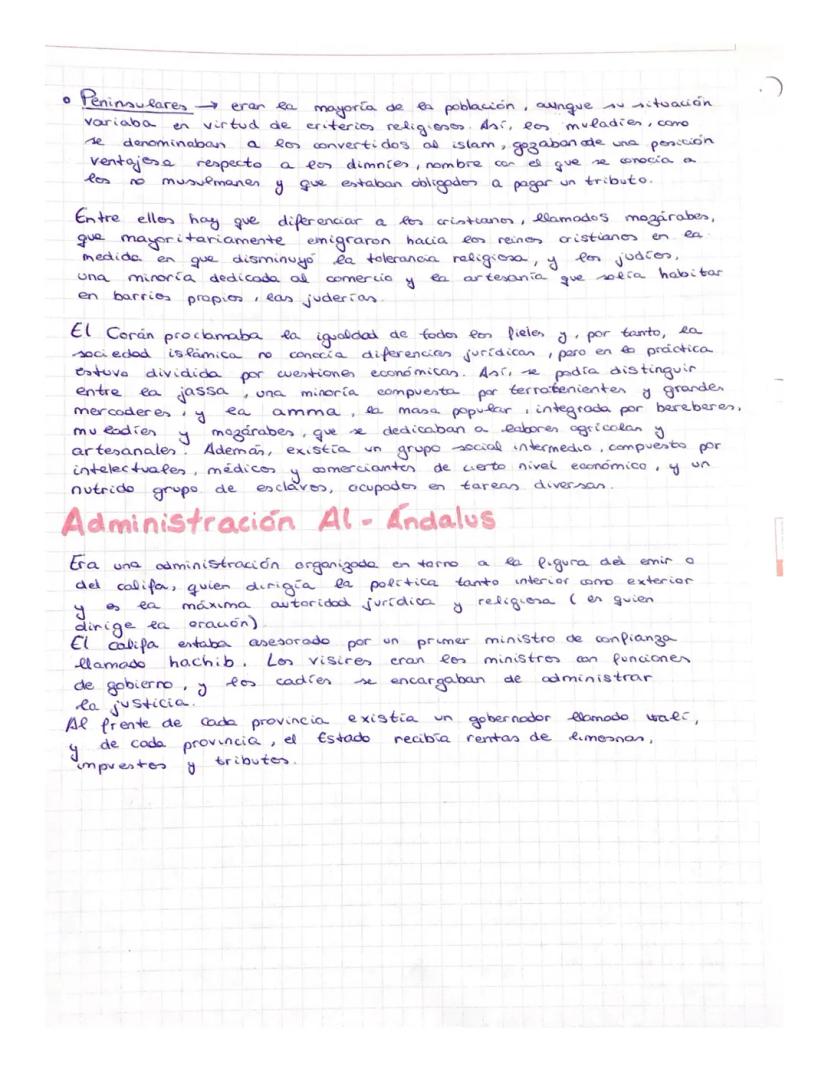 • Peninsulares → eran la mayoría de la población, aunque su situación
variaba en virtud de criterios religiosos. Así, los muladíes, como
se denominaban a los convertidos al islam, gozaban de una posición
ventajosa respecto a los dimníes, nombre con el que se conocía a
los no musulmanes y que estaban obligados a pagar un tributo.
Entre ellos hay que diferenciar a los cristianos, llamados mozárabes,
que mayoritariamente emigraron hacia los reinos cristianos en la
medida en que disminuyó la tolerancia religiosa, y los judíos,
una minoría dedicada al comercio y la artesanía que solía habitar
en barrios propios, las juderías.
El Corán proclamaba la igualdad de todos los fieles y, por tanto, la
sociedad islámica no conocía diferencias jurídicas, pero en la práctica
estuvo dividida por cuestiones económicas. Así, se podía distinguir
entre la jassa, una minoría compuesta por terratenientes y grandes
mercaderes, y la amma, la masa popular, integrada por bereberes,
muladíes y mozárabes, que se dedicaban a labores agrícolas y
artesanales. Además, existía un grupo social intermedio, compuesto por
intelectuales, médicos y comerciantes de cierto nivel económico, y un
nutrido grupo de esclavos, ocupados en tareas diversas.
Administración Al-Ándalus
Era una administración organizada en torno a la figura del emir o
del califa, quien dirigía la política tanto interior como exterior
y es la máxima autoridad jurídica y religiosa (es quien
dirige la oración).
El califa estaba asesorado por un primer ministro de confianza
llamado hachib. Los visires eran los ministros con funciones
de gobierno, y los cadíes se encargaban de administrar
la justicia.
Al frente de cada provincia existía un gobernador llamado walí,
y de cada provincia, el Estado recibía rentas de limosnas,
impuestos y tributos.